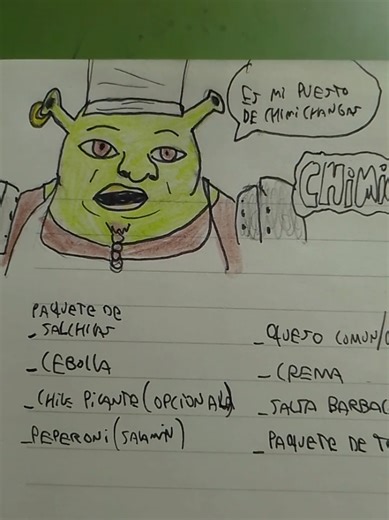 ES MI PUESTO
DE CHIMICHANGAS
CHIMI
PAQUETE DE
_SALCHIHAS
_CEBOLLA
_CHILE PICANTE (OPCIONAL)
_PEPERONI (SALAMIN)
_QUESO COMUN/
_CREMA
_SALSA BARBAC
_PAQUETE DE